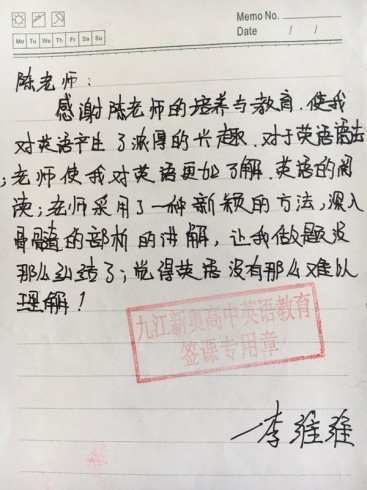 Memo No.
Date / /
Mo Tu We Th Fr Sa Su
陈老师：
感谢陈老师的培养与教育.使我
对英语产生了浓厚的兴趣.对于英语语法
;老师使我对英语更加了解.英语的阅
读;老师采用了一种新颖的方法,深入
骨髓的部析的讲解,让我做题没
那么纠结了;觉得英语没有那么难以
理解!
九江新奥高中英语教育
签课专用章
—李维维